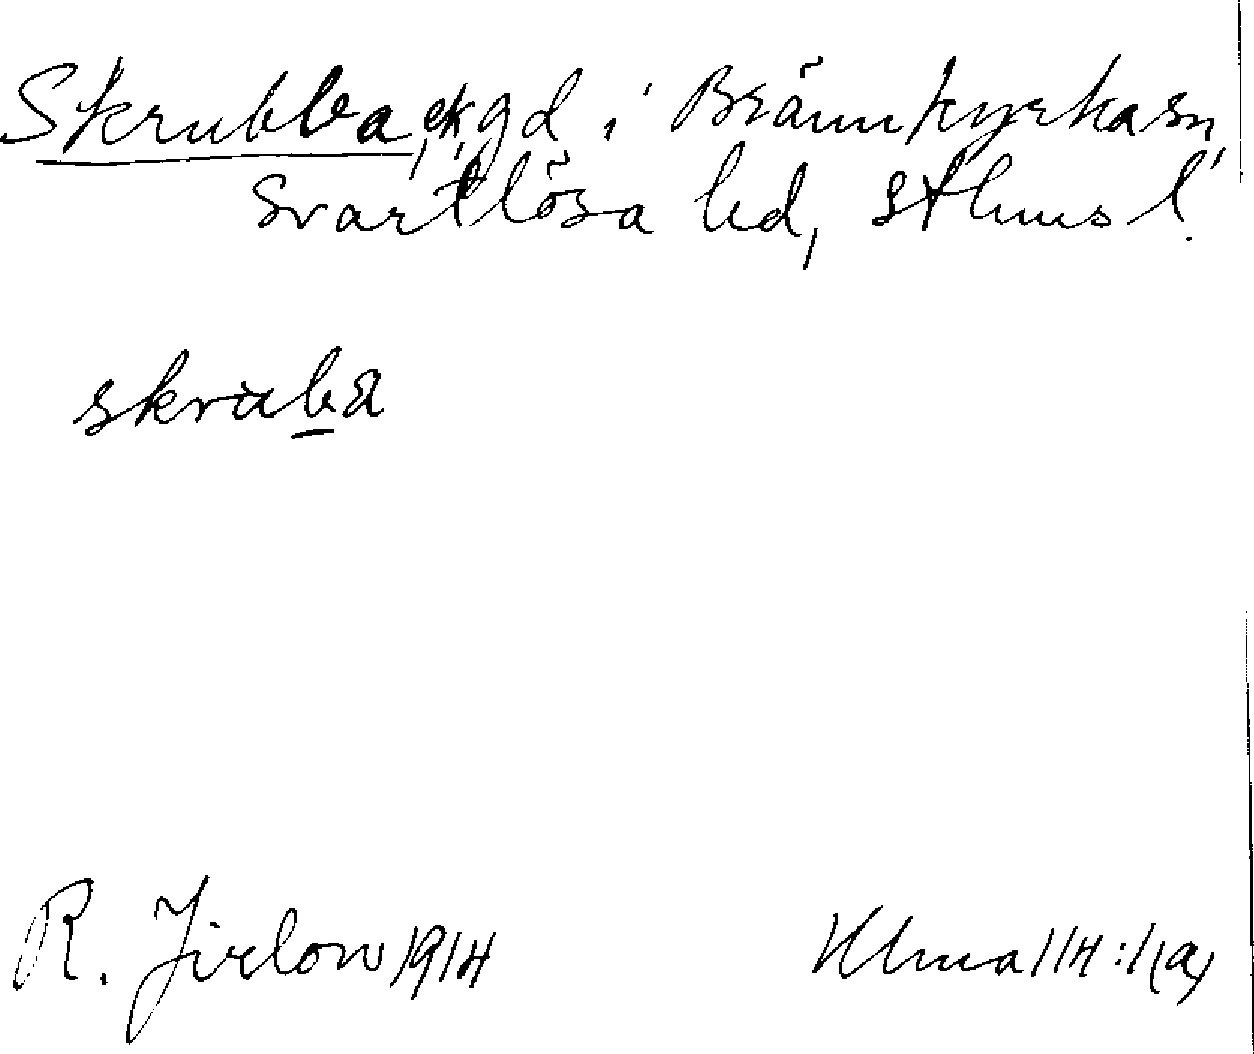 Skrubba, gd i Brännkyrka sn,
Svartlösa hd, Sthms l.
skruba
R. Jirlow 1914